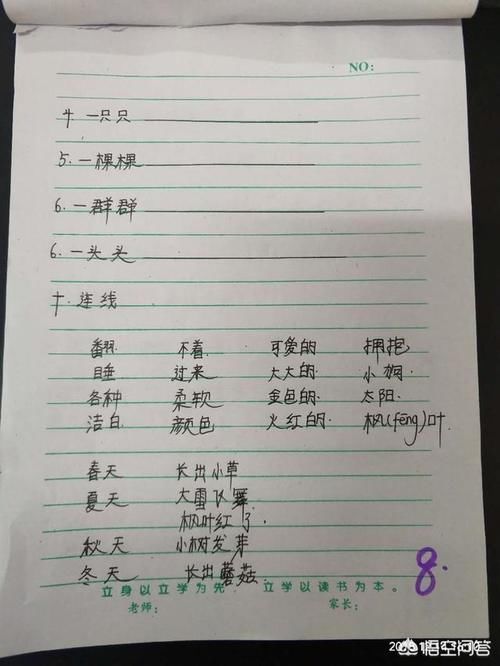 NO:
4. 一只只
5. 一棵棵
6. 一群群
6. 一头头
十. 连线
翻 不着 可爱的 拥抱
睡 过来 大大的 小狗
各种 柔软 金色的 太阳
洁白 颜色 火红的 枫(fēng)叶
春天 长出小草
夏天 大雪飞舞
枫叶红了
秋天 小树发芽
冬天 长出蘑菇
8.
立身以立学为先 立学以读书为本。
老师: 家长:
悟空问答